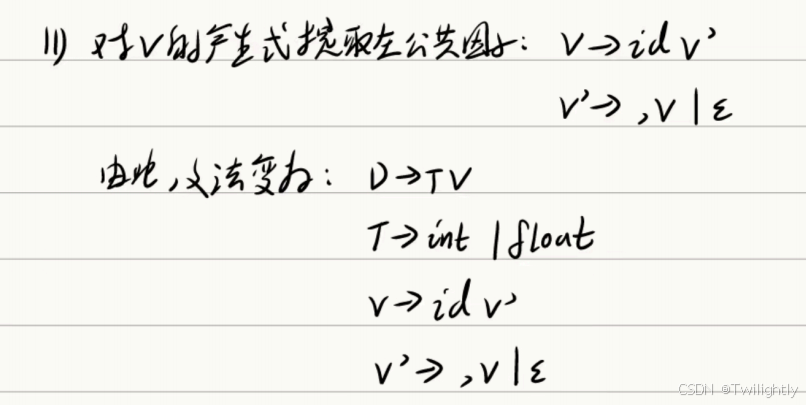 (1) 对V的产生式提取左公共因子: V→id V'
V'→ ,V | ε
由此,文法变为: D→TV
T→int | float
V→id V'
V'→ ,V | ε
CSDN @Twilightly